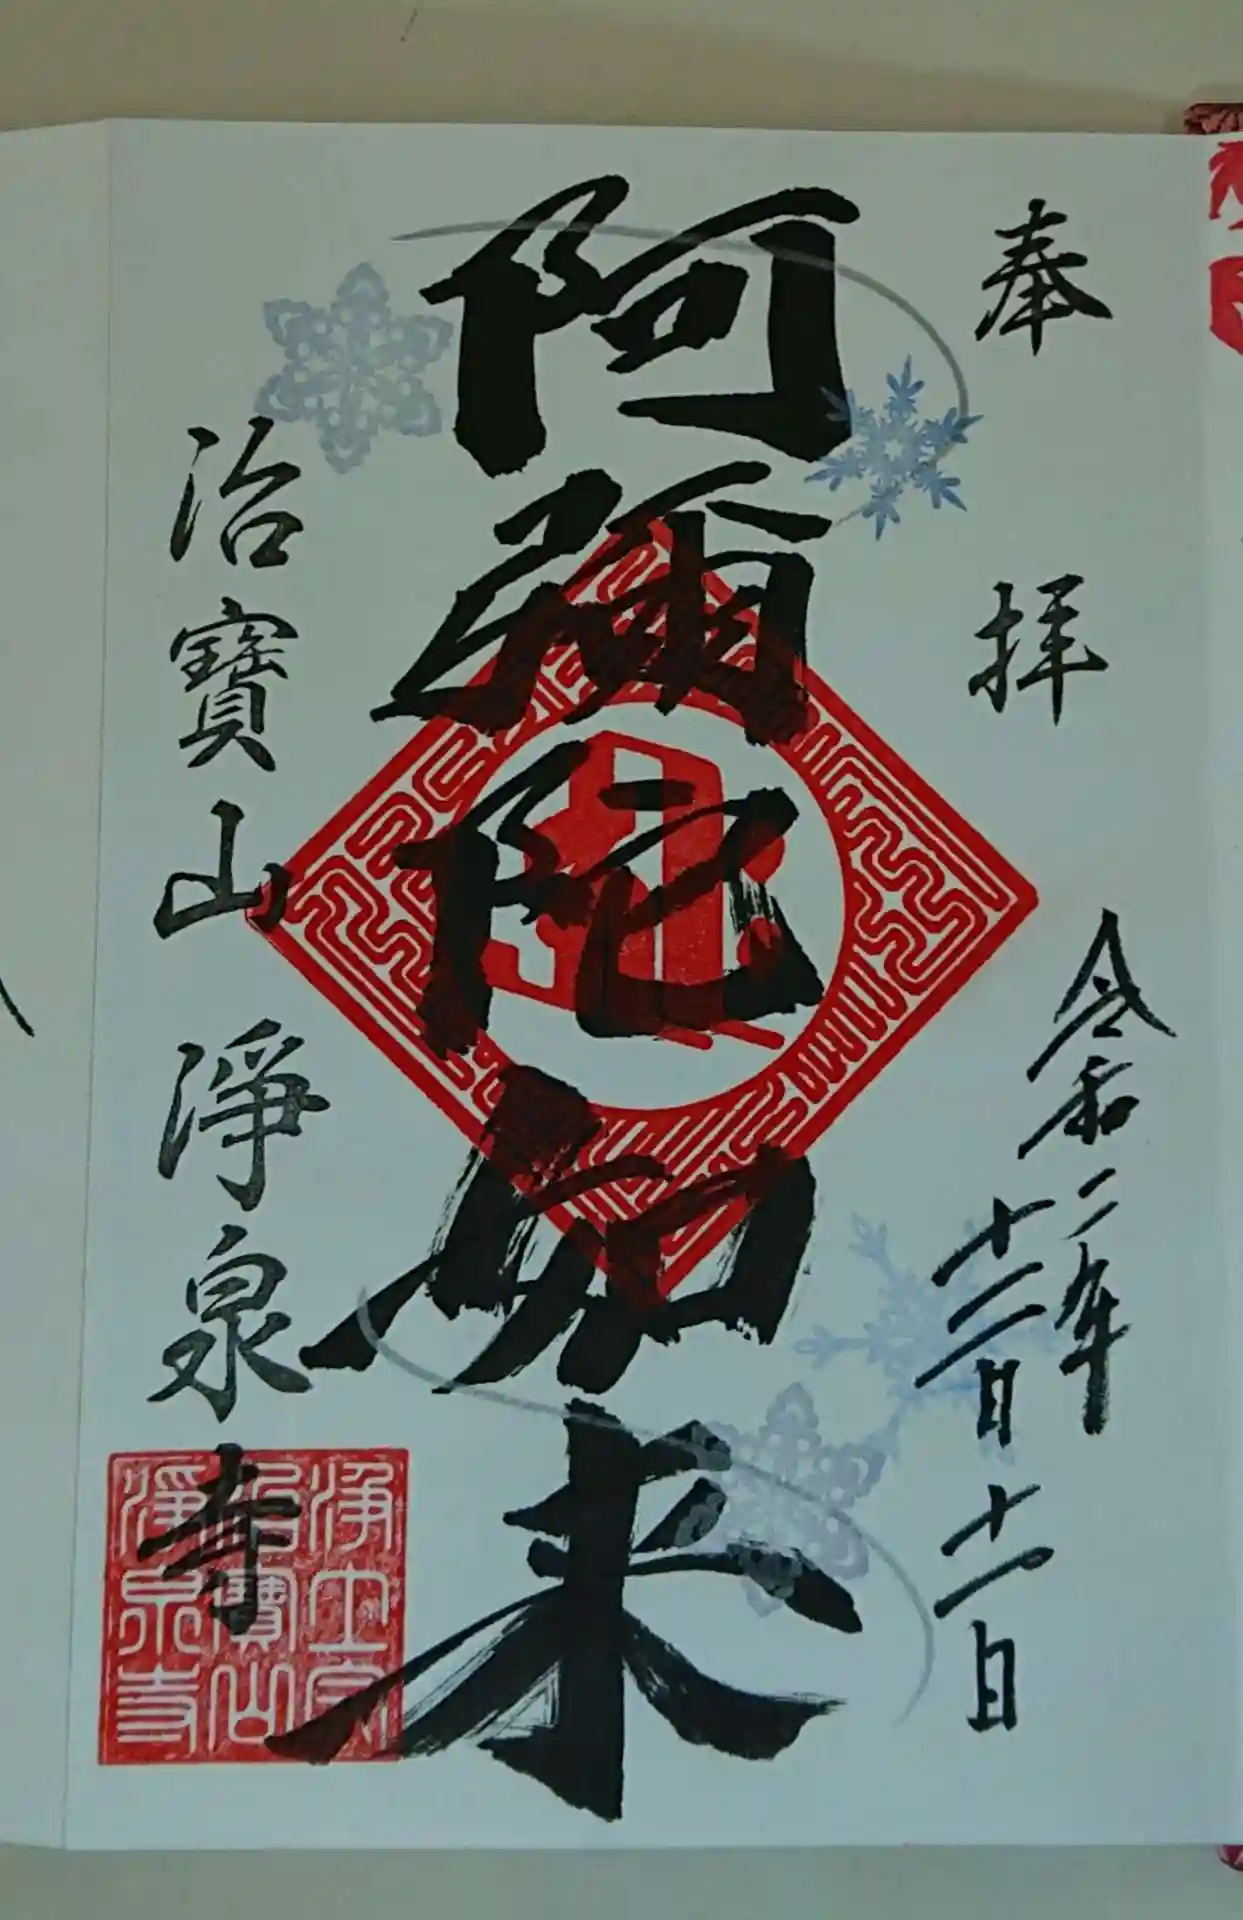 奉拝
令和二年
十二月十一日
阿彌陀如来
治寶山淨泉寺
浄土宗
治寶山
淨泉寺